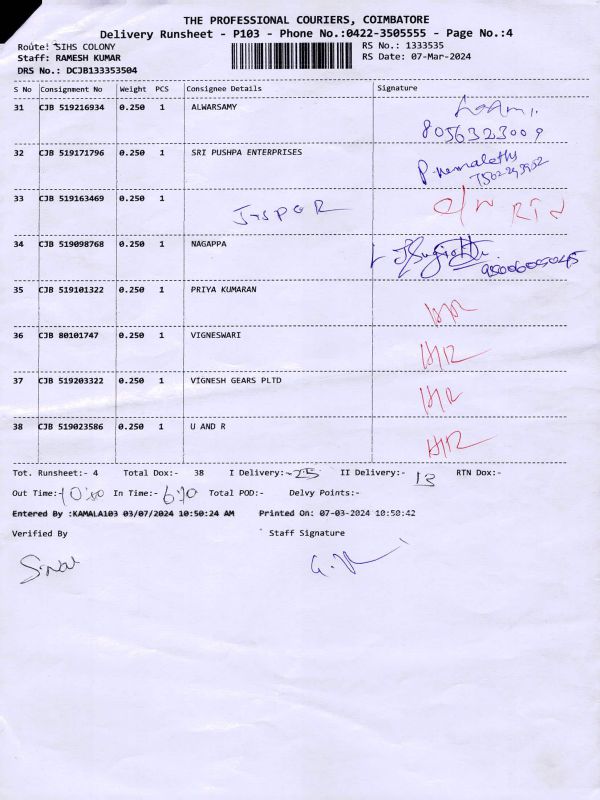 THE PROFESSIONAL COURIERS, COIMBATORE
Delivery Runsheet - P103 - Phone No.:0422-3505555 - Page No.:4
Route: SIHS COLONY
RS No.: 1333535
Staff: RAMESH KUMAR
RS Date: 07-Mar-2024
DRS No.: DCJB133353504
S No Consignment No Weight PCS Consignee Details Signature
31 CJB 519216934 0.250 1 ALWARSAMY
8056323009
32 CJB 519171796 0.250 1 SRI PUSHPA ENTERPRISES
33 CJB 519163469 0.250 1 RTN
34 CJB 519098768 0.250 1 NAGAPPA
35 CJB 519101322 0.250 1 PRIYA KUMARAN
36 CJB 80101747 0.250 1 VIGNESWARI H/R
37 CJB 519203322 0.250 1 VIGNESH GEARS PLTD H/R
38 CJB 519023586 0.250 1 U AND R H/R
Tot. Runsheet:- 4 Total Dox:- 38 I Delivery:- 25 II Delivery:- 13 RTN Dox:-
Out Time:- 10:00 In Time:- Total POD:- Delvy Points:-
Entered By :KAMALA103 03/07/2024 10:50:24 AM Printed On: 07-03-2024 10:50:42
Verified By Staff Signature